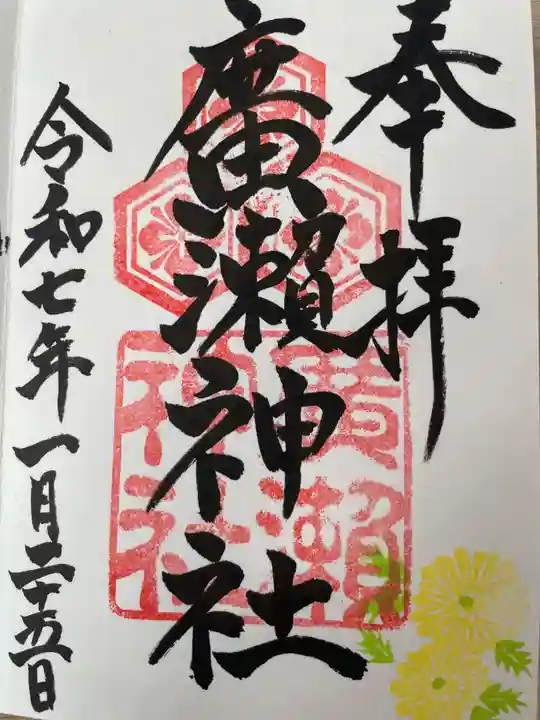 奉拝
廣瀬神社
廣瀬神社
令和七年一月二十五日